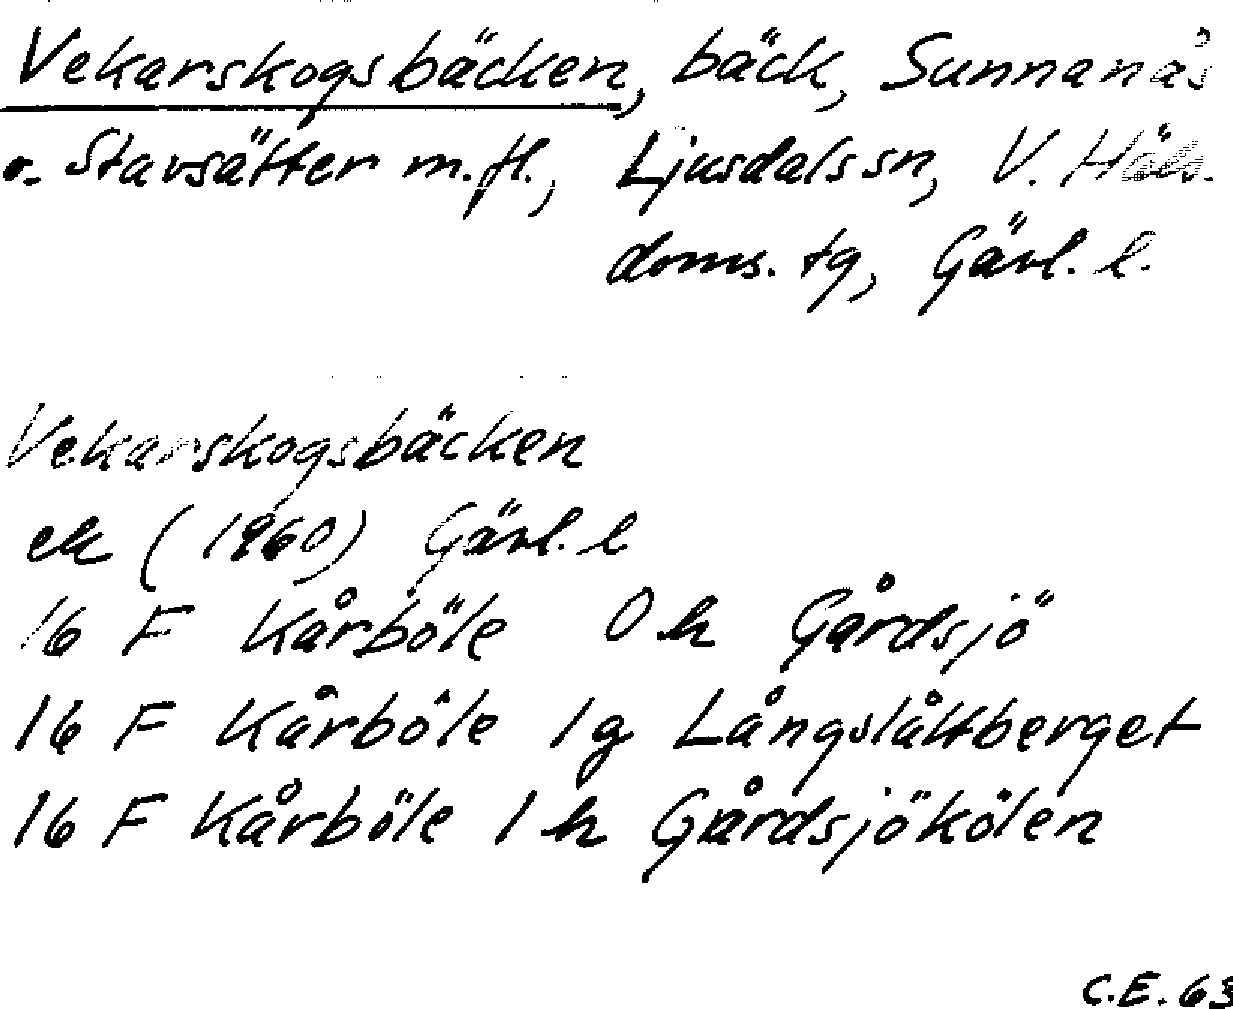 Vekarskogsbäcken, bäck, Sunnanås
o. Stavsätter m.fl., Ljusdals sn, V. Häls.
doms. tg, Gävl. l.
Vekarskogsbäcken
ek (1960) Gävl. l
16 F Kårböle 0 h Gårdsjö
16 F Kårböle 1g Långslåttberget
16 F Kårböle 1 h Gårdsjökölen
C.E. 63